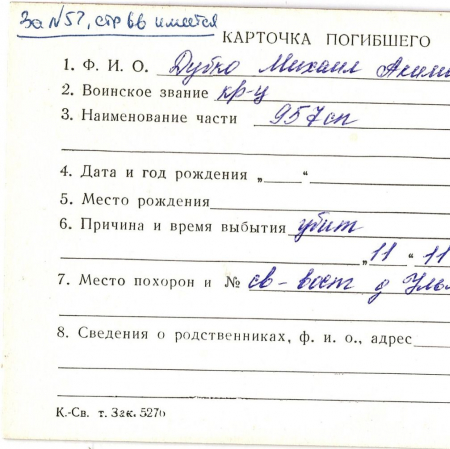 За №57, стр 66 имеется
КАРТОЧКА ПОГИБШЕГО
1. Ф. И. О. Дубко Михаил Аким
2. Воинское звание кр-ц
3. Наименование части 957сп
4. Дата и год рождения „ “
5. Место рождения
6. Причина и время выбытия убит
„11“ 11
7. Место похорон и № св-вост д
8. Сведения о родственниках, ф. и. о., адрес
К.-Св. т. Зак. 527о